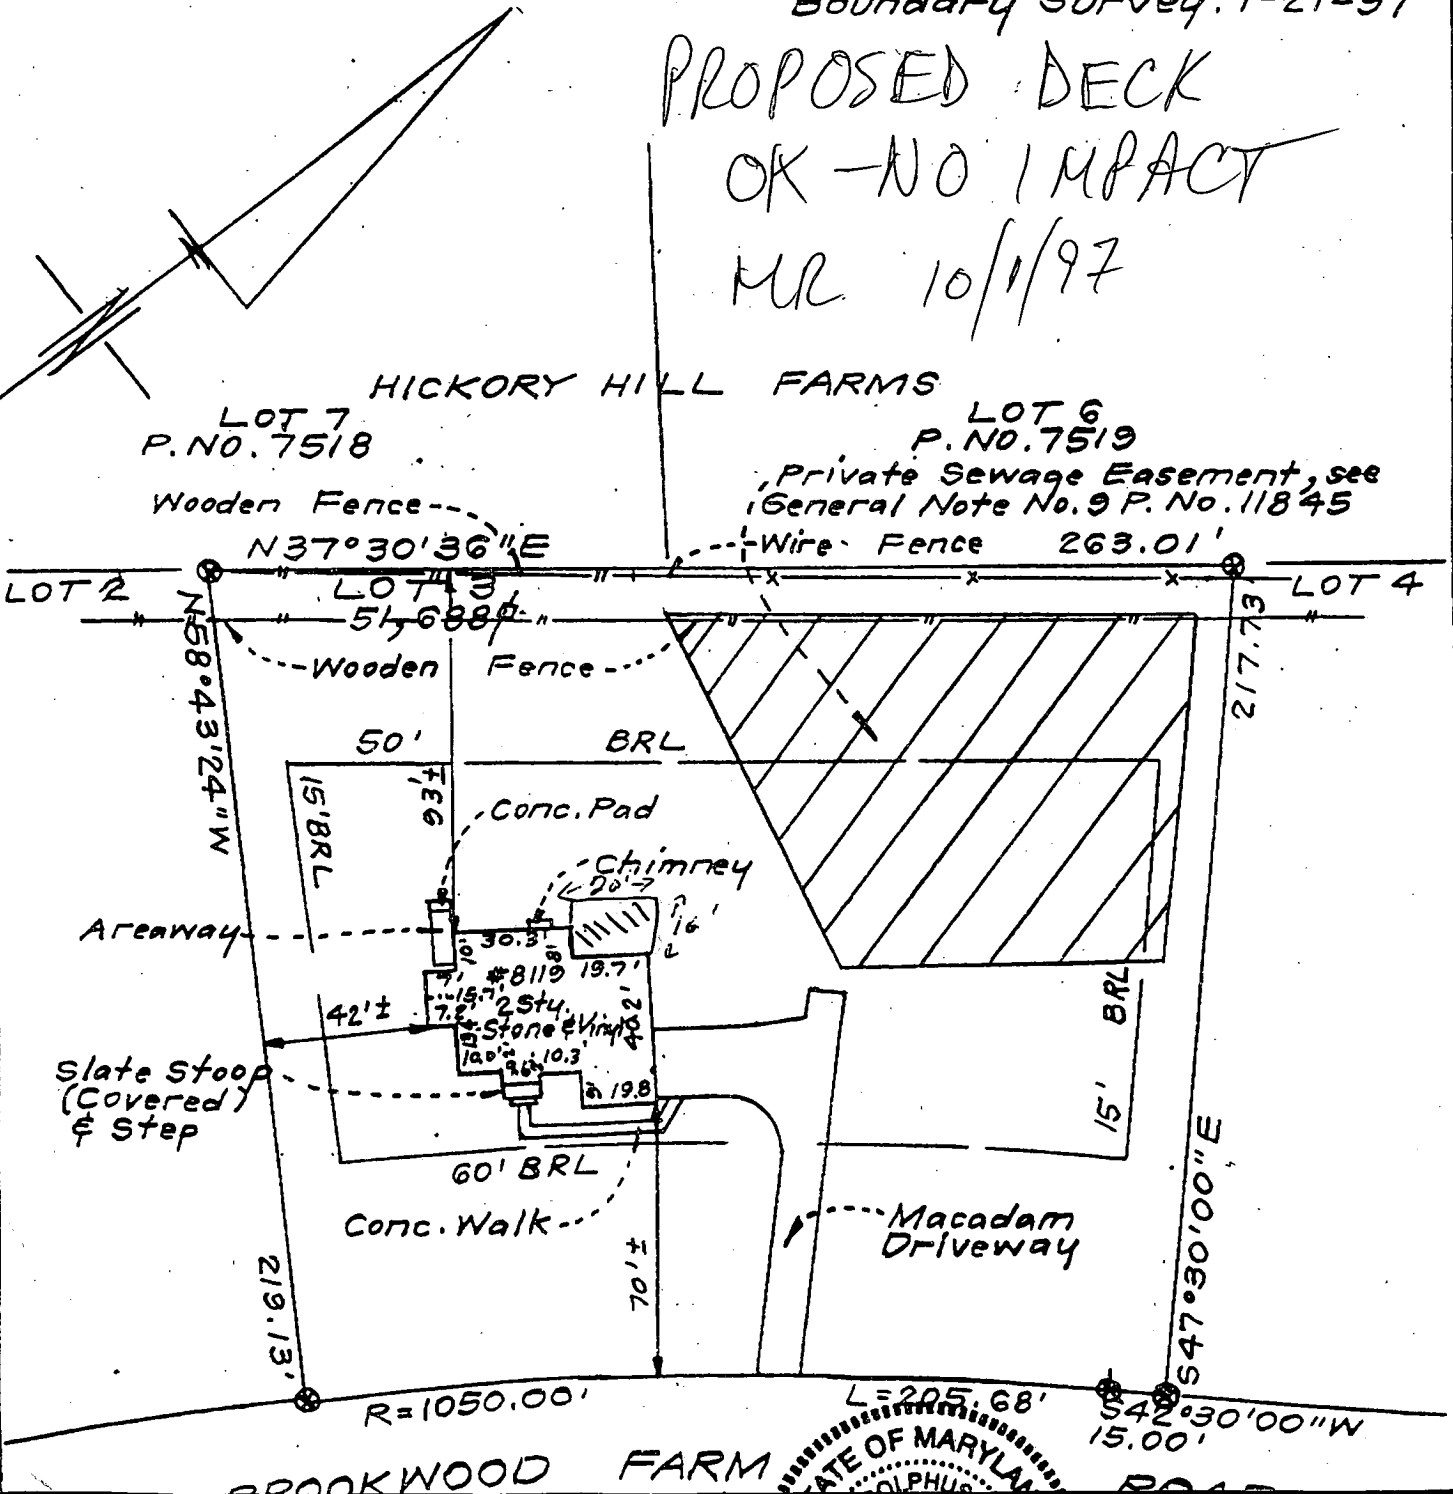 Boundary Survey: 1-21-97
PROPOSED DECK
OK - NO IMPACT
MR 10/1/97
HICKORY HILL FARMS
LOT 7
P. NO. 7518
LOT 6
P. NO. 7519
Private Sewage Easement, see
General Note No. 9 P. No. 11845
Wooden Fence
Wire Fence
N37°30'36"E
263.01'
LOT 2
LOT 3
LOT 4
51,688
Wooden Fence
N58°43'24"W
217.73'
50' BRL
15' BRL
93'±
Conc. Pad
Chimney
20'
16'
Areaway
30.3'
10'
8'
#8119
19.7'
15.7'
7.2'
2 Sty.
Stone & Vinyl
40.2'
42'±
10.3'
19.8
Slate Stoop
(Covered)
& Step
60' BRL
15' BRL
Conc. Walk
Macadam
Driveway
70'±
219.13'
S47°30'00"E
R=1050.00'
L=205.68'
S42°30'00"W
15.00'
BROOKWOOD FARM ROAD
STATE OF MARYLAND